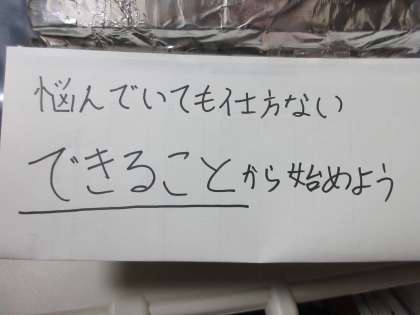 悩んでいても仕方ない
できることから始めよう